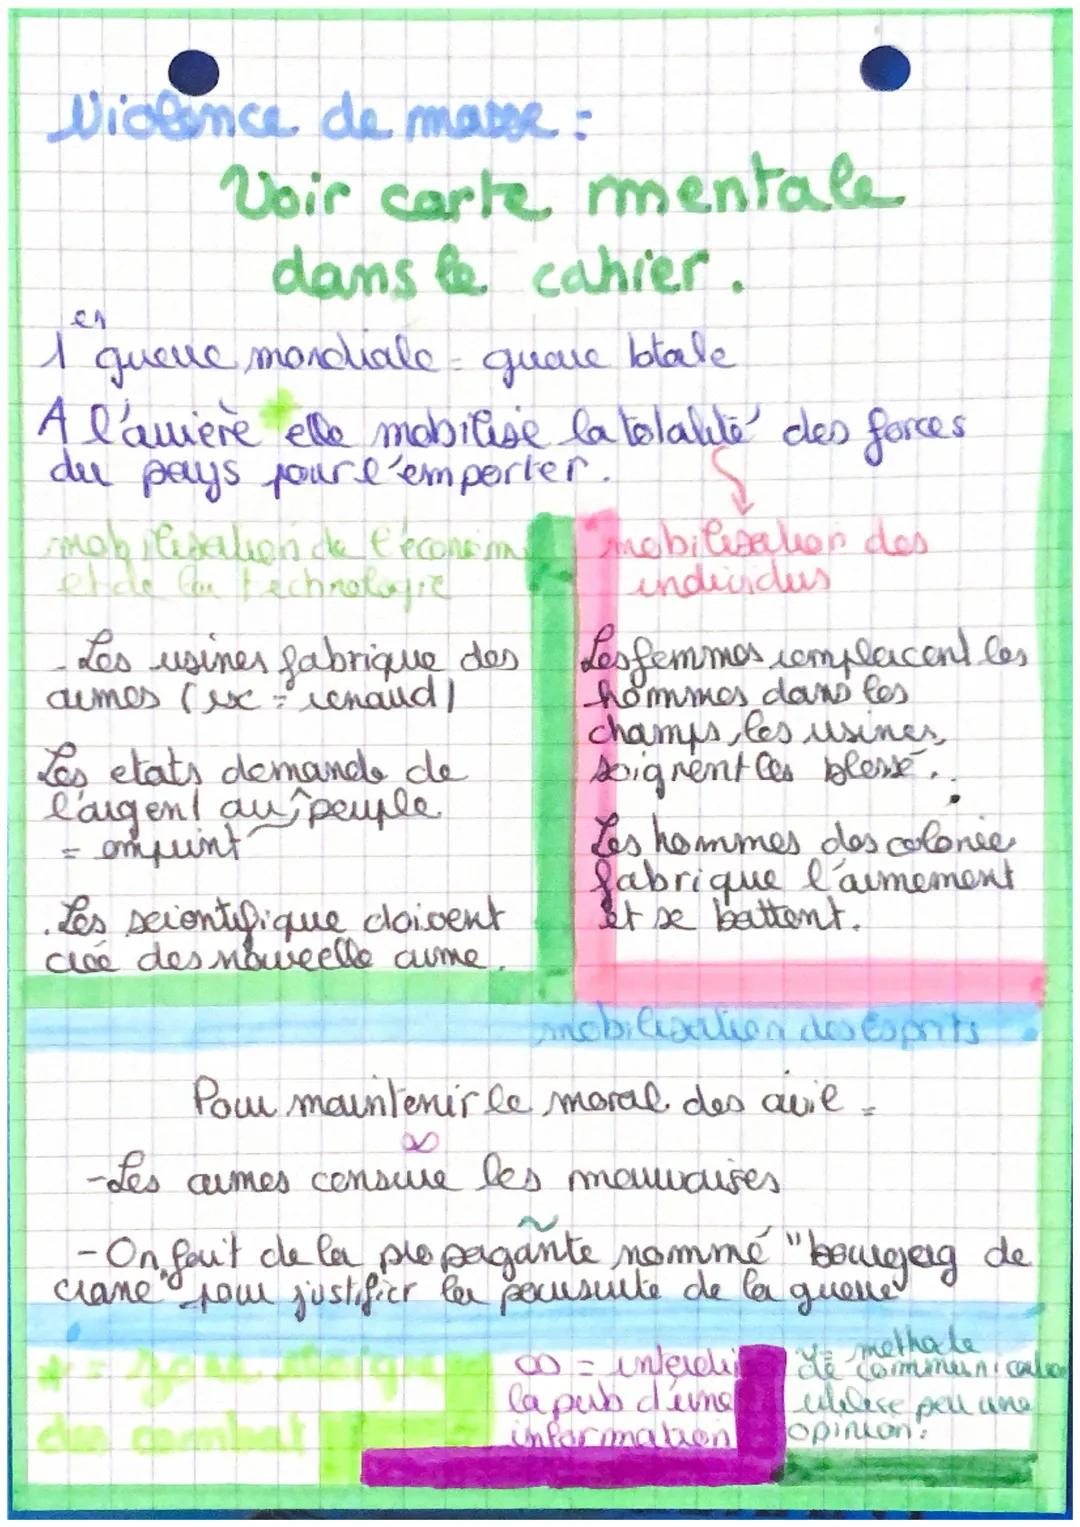 Violence de masse :
Voir carte mentale
dans le cahier.
1er guerre mondiale = guerre totale
A l'arrière * elle mobilise la totalité des forces
du pays pour l'emporter.
mobilisation de l'économi
et de la technologie
- Les usines fabrique des
armes (ex = renaud)
Les etats demande de
l'argent au peuple
= emprunt
. Les scientifique doivent
créé des nouvelle arme.
mobilisation des
individus
Les femmes remplacent les
hommes dans les
champs, les usines,
soignent les blessé..
Les hommes des colonie
fabrique l'armement
et se battent.
mobilisation des esprits
Pour maintenir le moral des civil =
∞
- Les armes censure les mauvaises
~
- On fait de la propagante nommé "bourgerg de
crane" pour justifier la poursuite de la guerre
* = zone
des combat
∞ = interdi
la pub d'une
information
~ = methode
de communication
utilise par une
opinion.